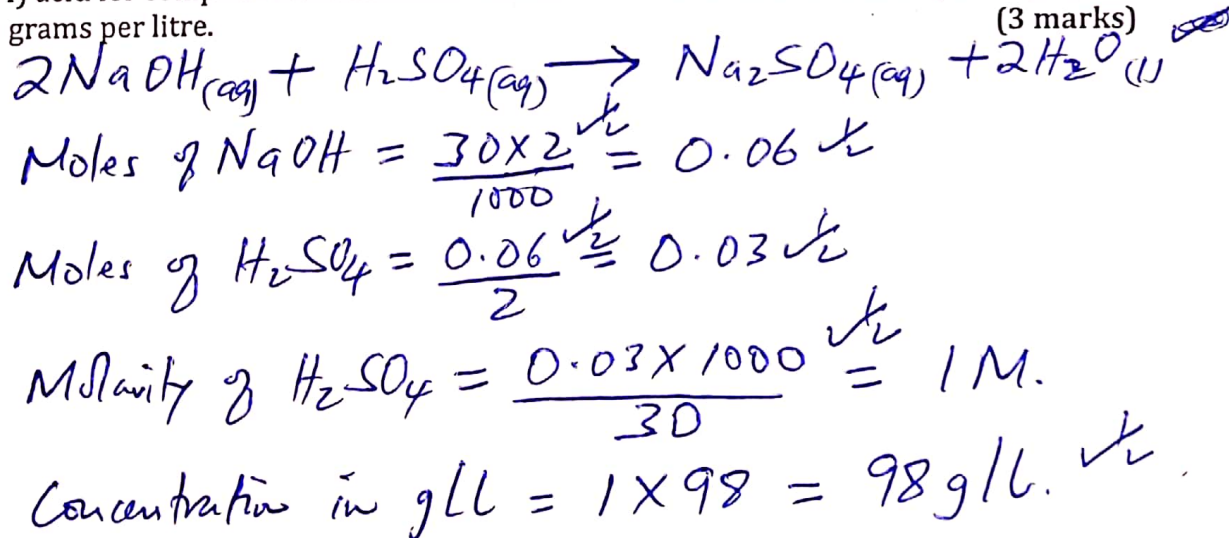 grams per litre.
(3 marks)
2NaOH(aq) + H₂SO₄(aq) → Na₂SO₄(aq) + 2H₂O(l)
Moles of NaOH = 30×2/1000 ✓½ = 0.06 ✓½
Moles of H₂SO₄ = 0.06/2 ✓½ = 0.03 ✓½
Molarity of H₂SO₄ = 0.03×1000/30 ✓½ = 1M.
Concentration in g/l = 1×98 = 98g/l. ✓½